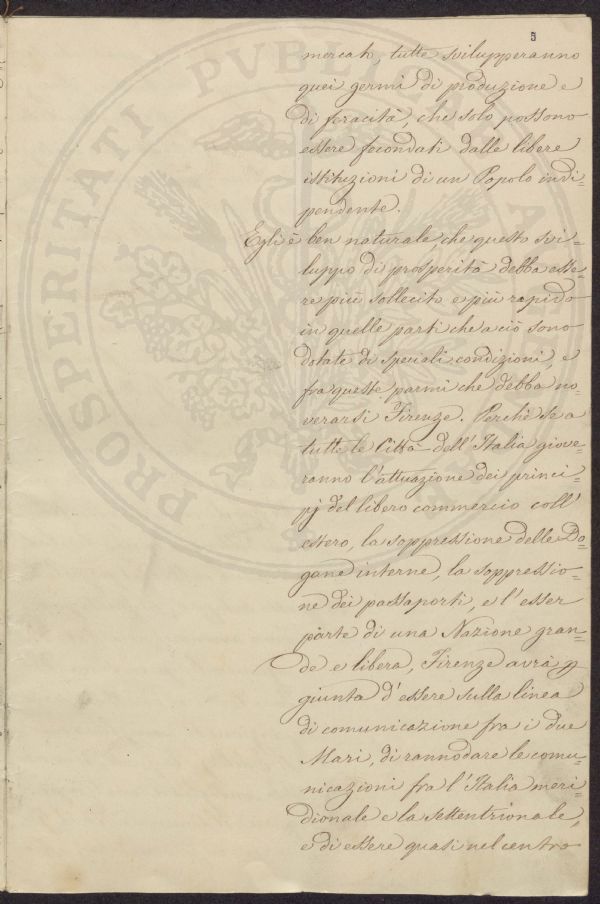 5
mercato, tutte svilupperanno
quei germi di produzione e
di feracità, che solo possono
essere fecondati dalle libere
istituzioni di un Popolo indi=
pendente.
Egli è ben naturale, che questo svi=
luppo di prosperità debba esse=
re più sollecito e più rapido
in quelle parti che a ciò sono
dotate di speciali condizioni, e
fra queste parmi che debba no=
verarsi Firenze. Perchè se a
tutte le Città dell'Italia giove=
ranno l'attuazione dei princi=
pj del libero commercio coll'
estero, la soppressione delle Do=
gane interne, la soppressio=
ne dei passaporti, e l'esser
parte di una Nazione gran=
de e libera, Firenze avrà p
giunta d'essere sulla linea
di comunicazione fra i due
Mari, di rannodare le comu=
nicazioni fra l'Italia meri=
dionale e la settentrionale,
e di essere quasi nel centro
PROSPERITATI PVBLICAE